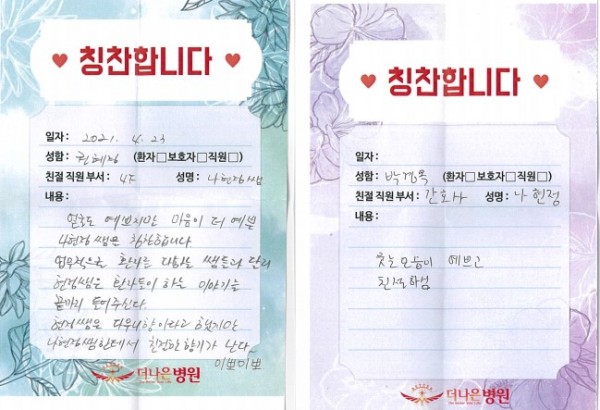 칭찬합니다
일자: 2021. 4. 23
성함: 권혜정 (환자□ 보호자□ 직원□)
친절 직원 부서: 4F 성명: 나현정쌤
내용:
얼굴도 예쁘지만 마음이 더 예쁜
나현정 쌤을 칭찬합니다
업무적으로 환자를 대하는 쌤들과 달리
현정쌤은 환자들이 하는 이야기를
끝까지 들어주신다.
현정쌤은 다우니향이라고 했지만
나현정쌤한테서 친절한 향기가 난다~
이쁘이쁘
더나은병원
칭찬합니다
일자:
성함: 박경옥 (환자□ 보호자□ 직원□)
친절 직원 부서: 간호사 성명: 나현정
내용:
웃는 모습이 예쁘고
친절하심
더나은병원